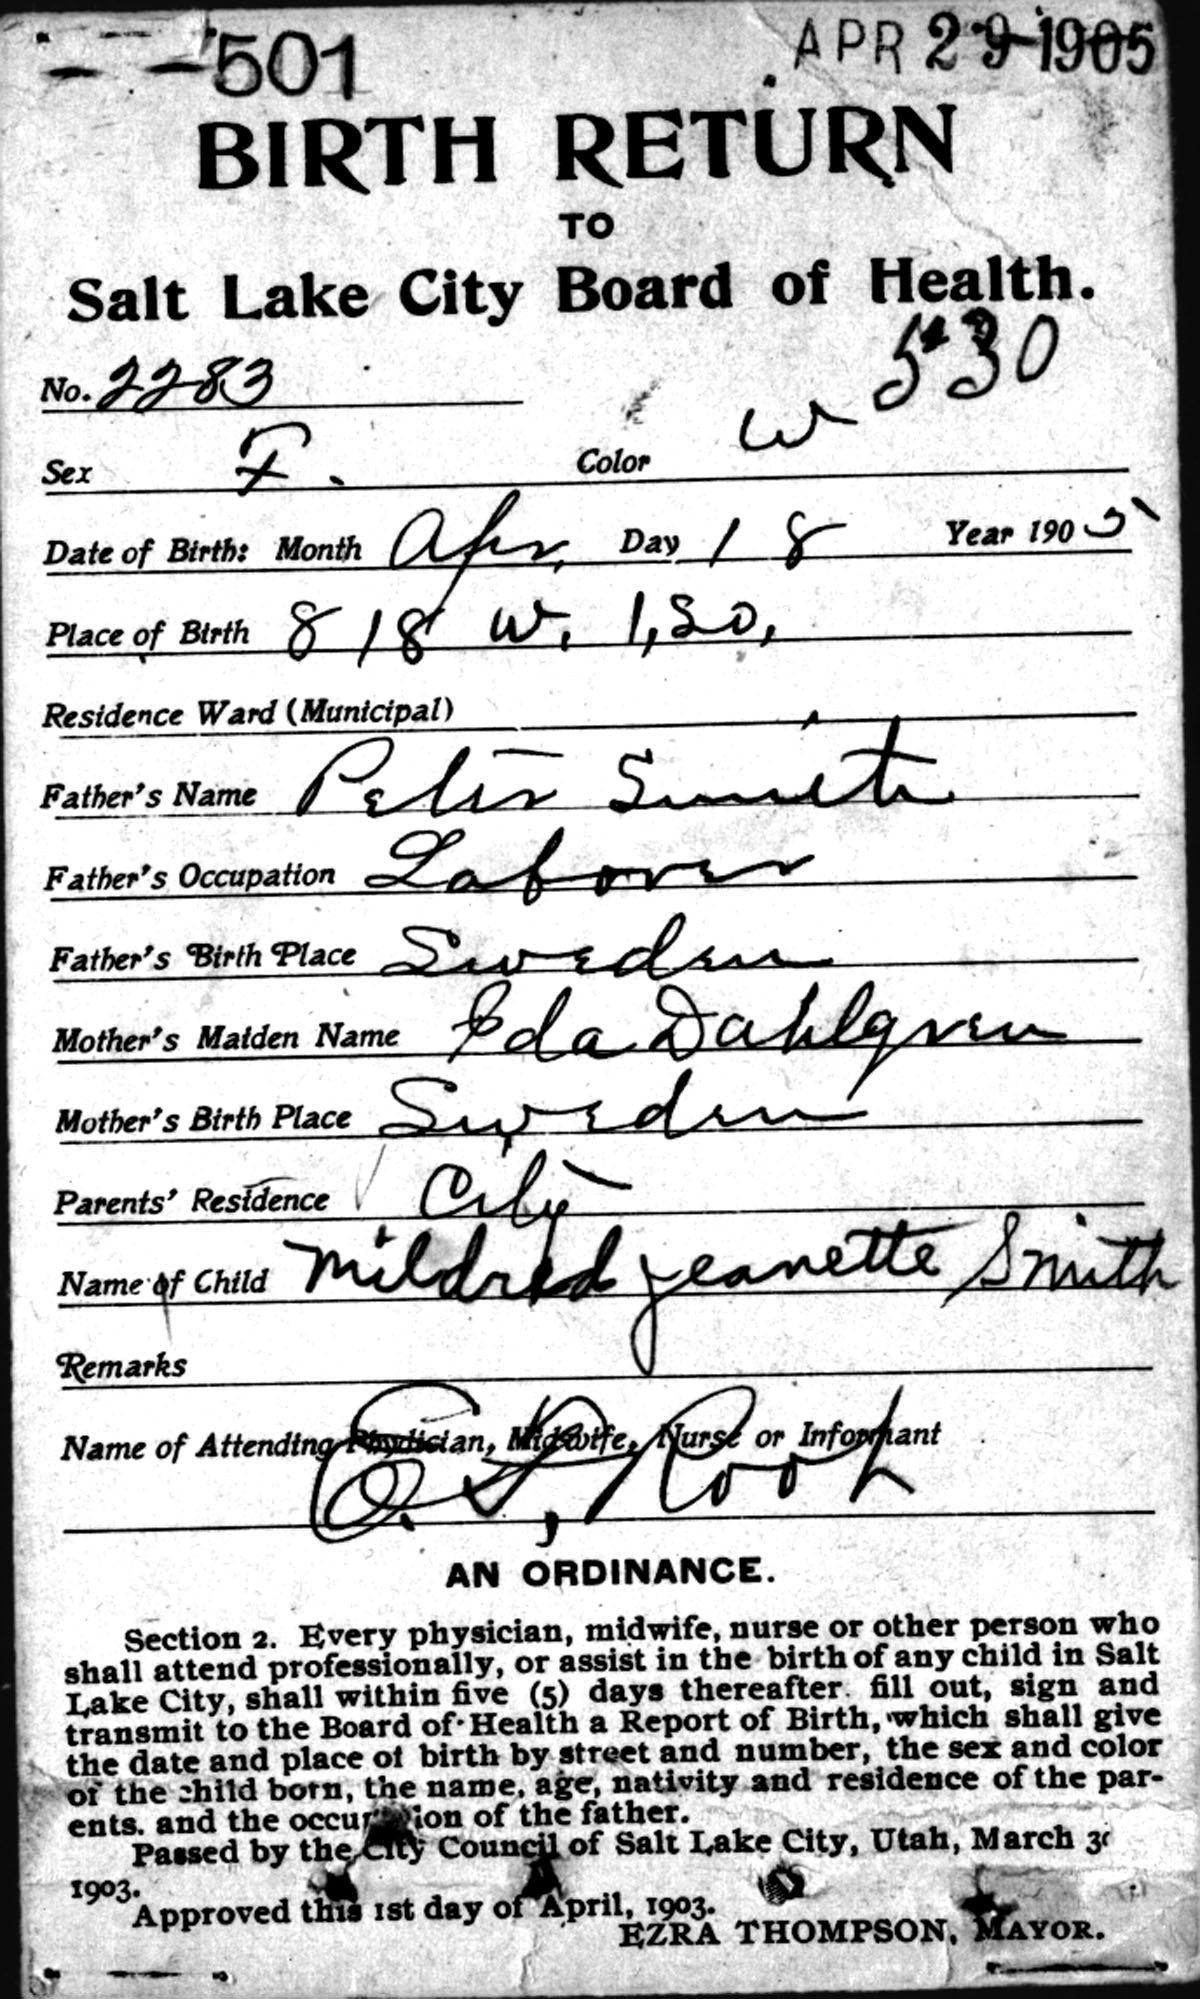 501 APR 29 1905
BIRTH RETURN
TO
Salt Lake City Board of Health.
530
No. 2283
Sex F. Color W
Date of Birth: Month Apr, Day 18 Year 1905
Place of Birth 818 W. 1, So,
Residence Ward (Municipal)
Father's Name Peter Smith
Father's Occupation Laborer
Father's Birth Place Sweden
Mother's Maiden Name Ida Dahlgren
Mother's Birth Place Sweden
Parents' Residence City
Name of Child Mildred Jeanette Smith
Remarks
Name of Attending Physician, Midwife, Nurse or Informant
AN ORDINANCE.
Section 2. Every physician, midwife, nurse or other person who
shall attend professionally, or assist in the birth of any child in Salt
Lake City, shall within five (5) days thereafter fill out, sign and
transmit to the Board of Health a Report of Birth, which shall give
the date and place of birth by street and number, the sex and color
of the child born, the name, age, nativity and residence of the par-
ents. and the occupation of the father.
Passed by the City Council of Salt Lake City, Utah, March
1903.
Approved this 1st day of April, 1903.
EZRA THOMPSON, MAYOR.